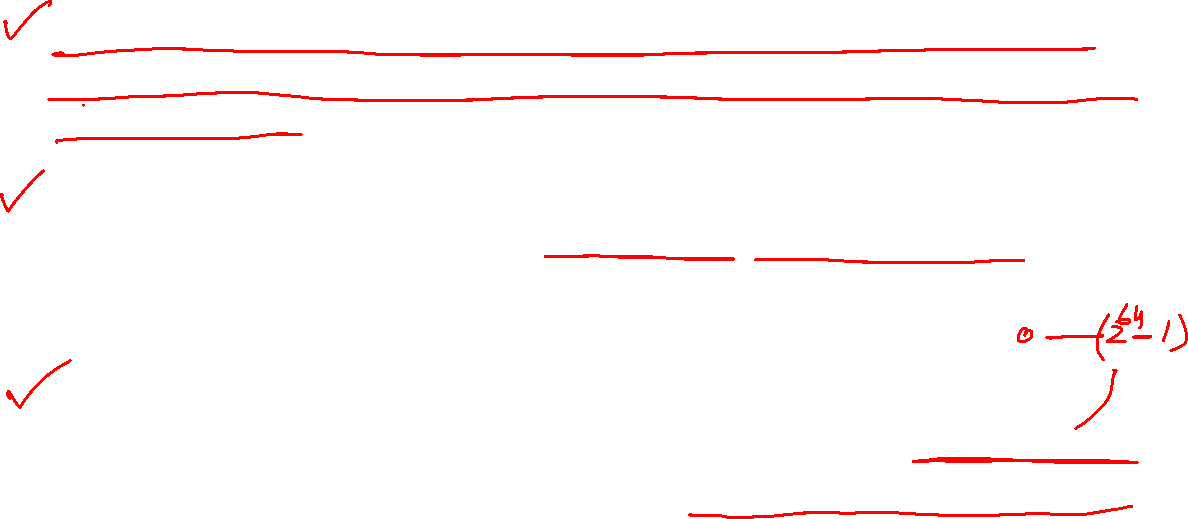 0 — (2^64 - 1)